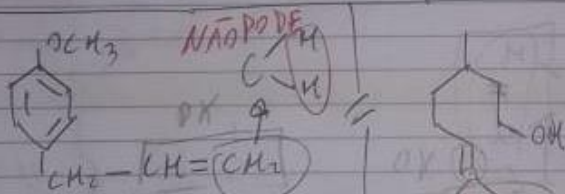 OCH3
NÃO PODE
H
C
H
OH
CH2 — CH=CH2